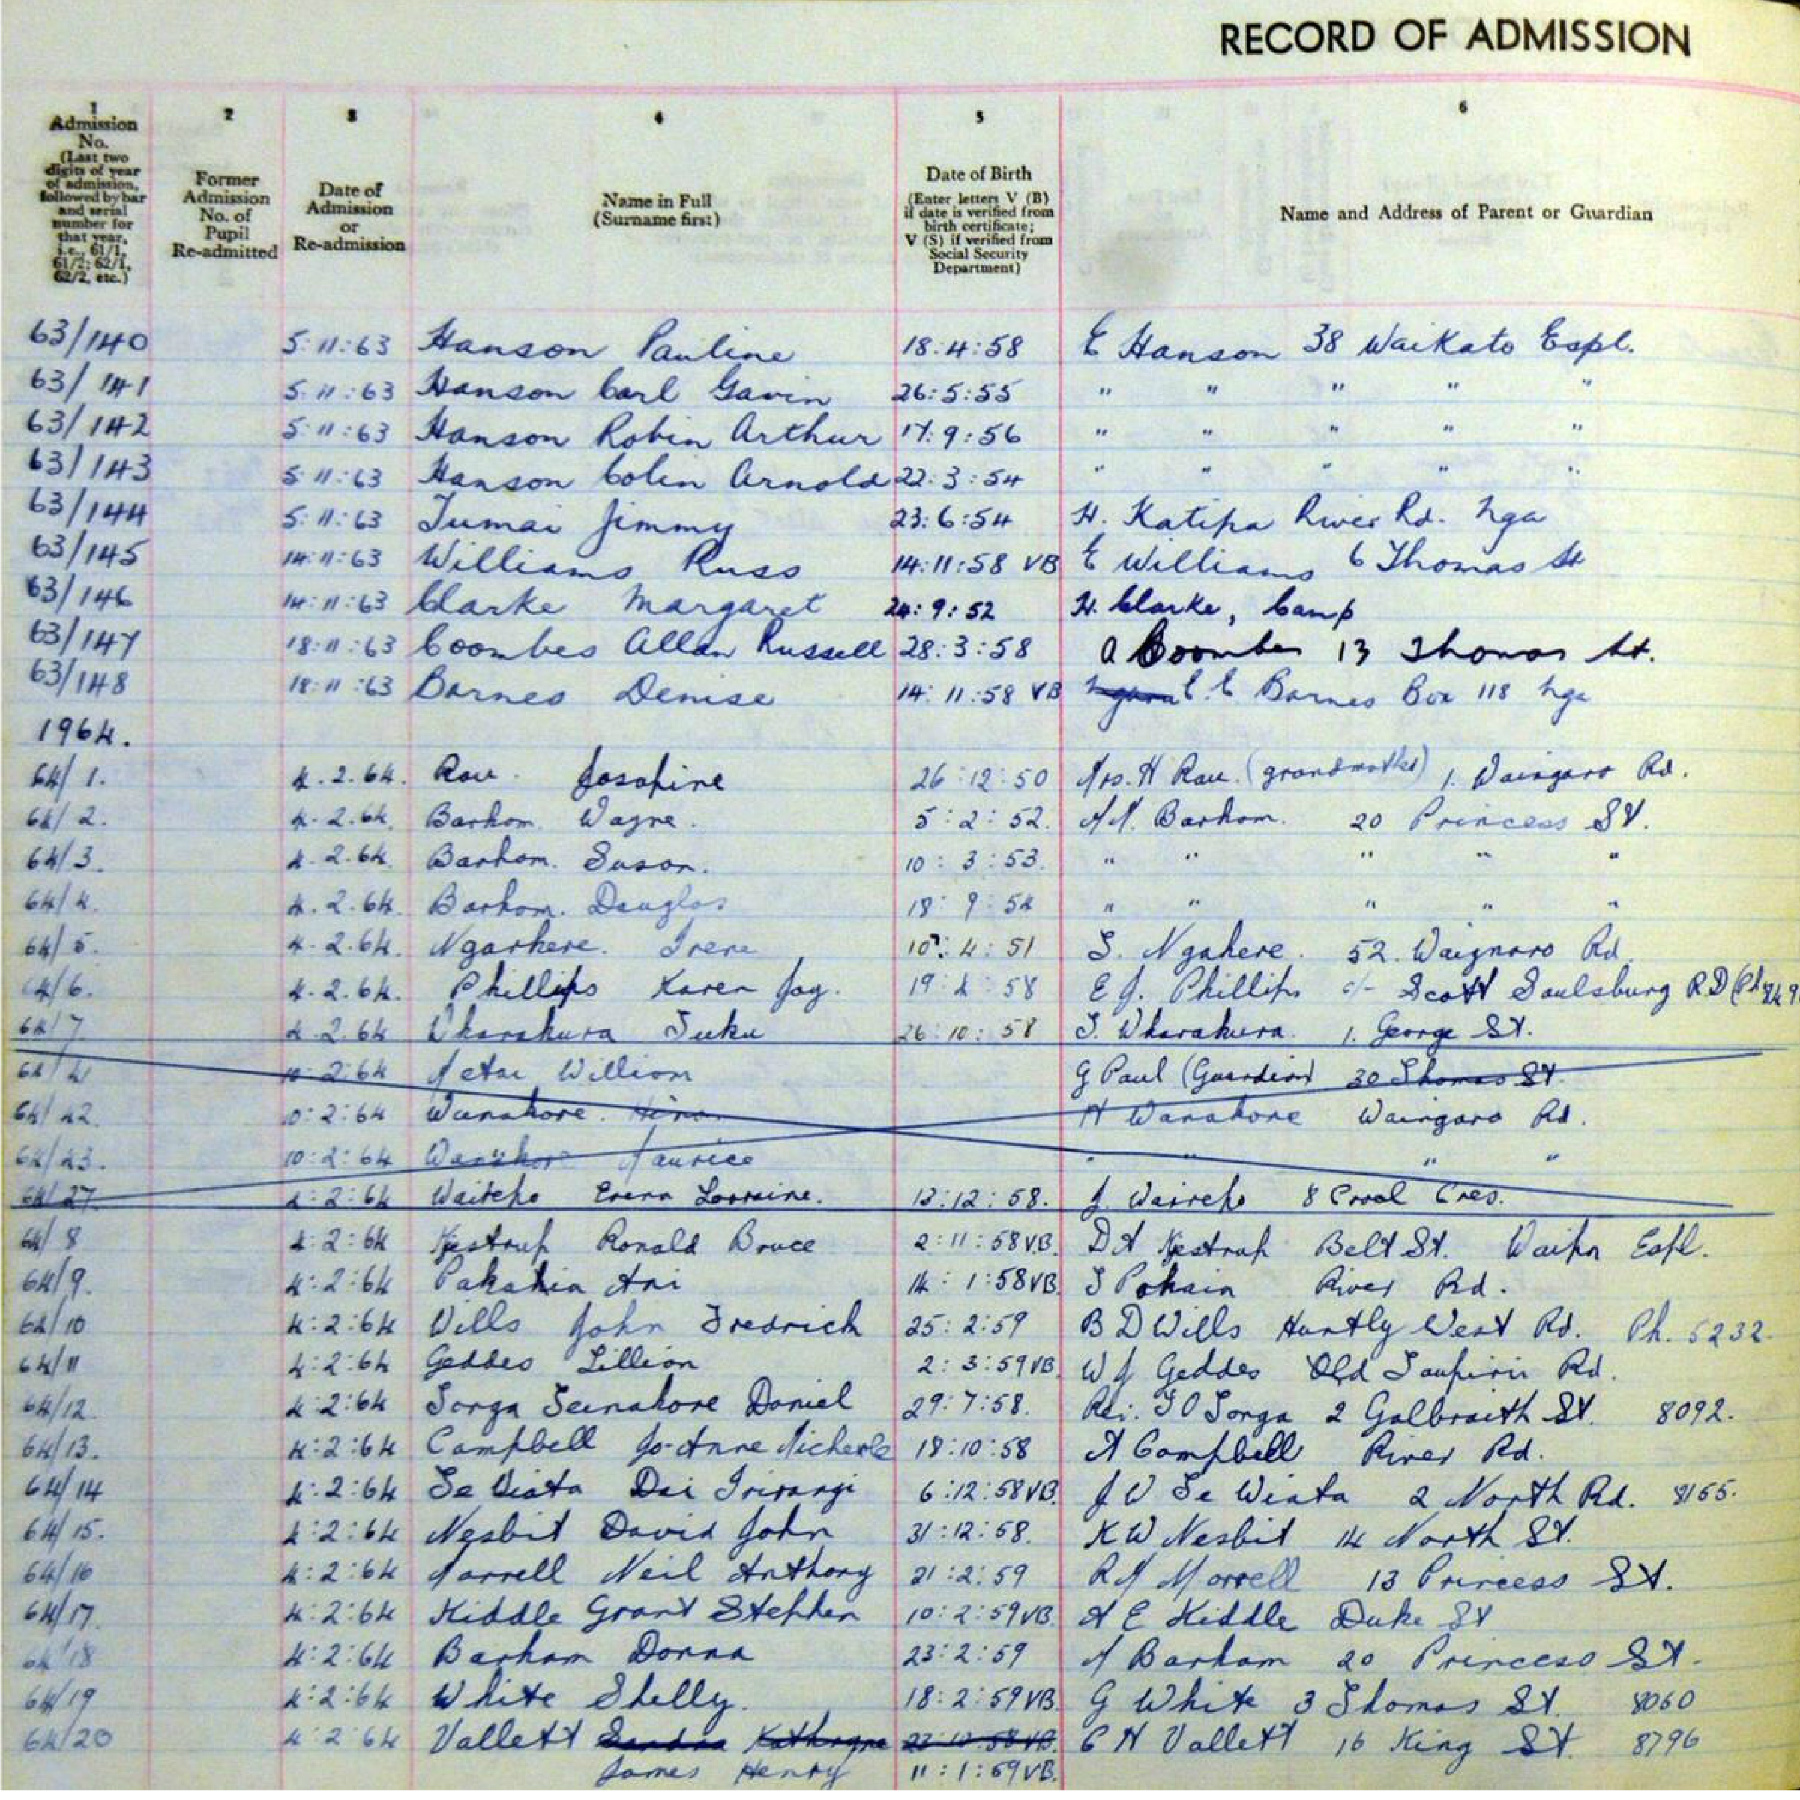 RECORD OF ADMISSION
1 2 3 4 5 6
Admission No. (Last two digits of year of admission, followed by bar and serial number for that year, i.e., 61/1, 61/2; 62/1, 62/2, etc.)
Former Admission No. of Pupil Re-admitted
Date of Admission or Re-admission
Name in Full (Surname first)
Date of Birth (Enter letters V (B) if date is verified from birth certificate; V (S) if verified from Social Security Department)
Name and Address of Parent or Guardian
63/140 5:11:63 Hanson Pauline 18:4:58 E Hanson 38 Waikato Espl.
63/141 5:11:63 Hanson Carl Gavin 26:5:55 " " " " "
63/142 5:11:63 Hanson Robin Arthur 17:9:56 " " " " "
63/143 5:11:63 Hanson Colin Arnold 22:3:54 " " " " "
63/144 5:11:63 Tumai Jimmy 23:6:54 H. Katipa River Rd. Nga
63/145 14:11:63 Williams Russ 14:11:58 VB E Williams 6 Thomas St
63/146 14:11:63 Clarke Margaret 24:9:52 H. Clarke, Camp
63/147 18:11:63 Coombes Allan Russell 28:3:58 A Coombes 13 Thomas St.
63/148 18:11:63 Barnes Denise 14:11:58 VB C. C Barnes Box 118 Nga
1964.
64/1. 4.2.64. Rau. Josephine 26:12:50 Mrs. H Rau. (grandmother) 1. Waingaro Rd.
64/2. 4.2.64. Barham. Wayne. 5:2:52. M. Barham. 20 Princess St.
64/3. 4.2.64. Barham. Susan. 10:3:53. " " " " "
64/4. 4.2.64. Barham. Douglas 18:9:54 " " " " "
64/5. 4.2.64. Ngarhere. Irene 10:4:51 S. Ngahere. 52. Waignaro Rd
64/6. 4.2.64. Phillips Karen Joy. 19:4:58 E J. Phillips c/- Scott Saulsbury RD
64/7. 4.2.64 Wharakura Tuku 26:10:58 T. Wharakura. 1. George St.
10:2:64 William G Paul (Guardian) 30 Thomas St.
64/22. 10:2:64 Wanakore. Hina H Wanakore Waingaro Rd.
64/23. 10:2:64 Wanakore Maurice " " " "
64/27 4:2:64 Lorraine. 12:12:58. J. 8 Croal Cres.
64/8 4:2:64 Kjestrup Ronald Bruce 2:11:58 VB. D A Kjestrup Belt St. Waipa Espl.
64/9. 4:2:64 Ani 14:1:58 VB. River Rd.
64/10 4:2:64 Wills John Fredrich 25:2:59 B D Wills Huntly West Rd. Ph. 5232.
64/11 4:2:64 Geddes Lillian 2:3:59 VB. W J Geddes Old Taupiri Rd.
64/12. 4:2:64 Tonga Daniel 29:7:58. Rev. T O Tonga 2 Galbraith St. 8092.
64/13. 4:2:64 Campbell Jo-Anne Nicherle 18:10:58 A Campbell River Rd.
64/14 4:2:64 Te Wiata Dai Irirangi 6:12:58 VB. J W Te Wiata 2 North Rd. 8155.
64/15. 4:2:64 Nesbit David John 31:12:58. K W Nesbit 14 North St.
64/16 4:2:64 Morrell Neil Anthony 21:2:59 R M Morrell 13 Princess St.
64/17. 4:2:64 Kiddle Grant Stephen 10:2:59 VB. A E Kiddle Duke St
64/18 4:2:64 Barham Donna 23:2:59 M Barham 20 Princess St.
64/19 4:2:64 White Shelly. 18:2:59 VB. G White 3 Thomas St. 8060
64/20 4:2:64 Vallett Sandra Kathryne 22:10:58 VB. C H Vallett 16 King St. 8796
James Henry 11:1:59 VB.